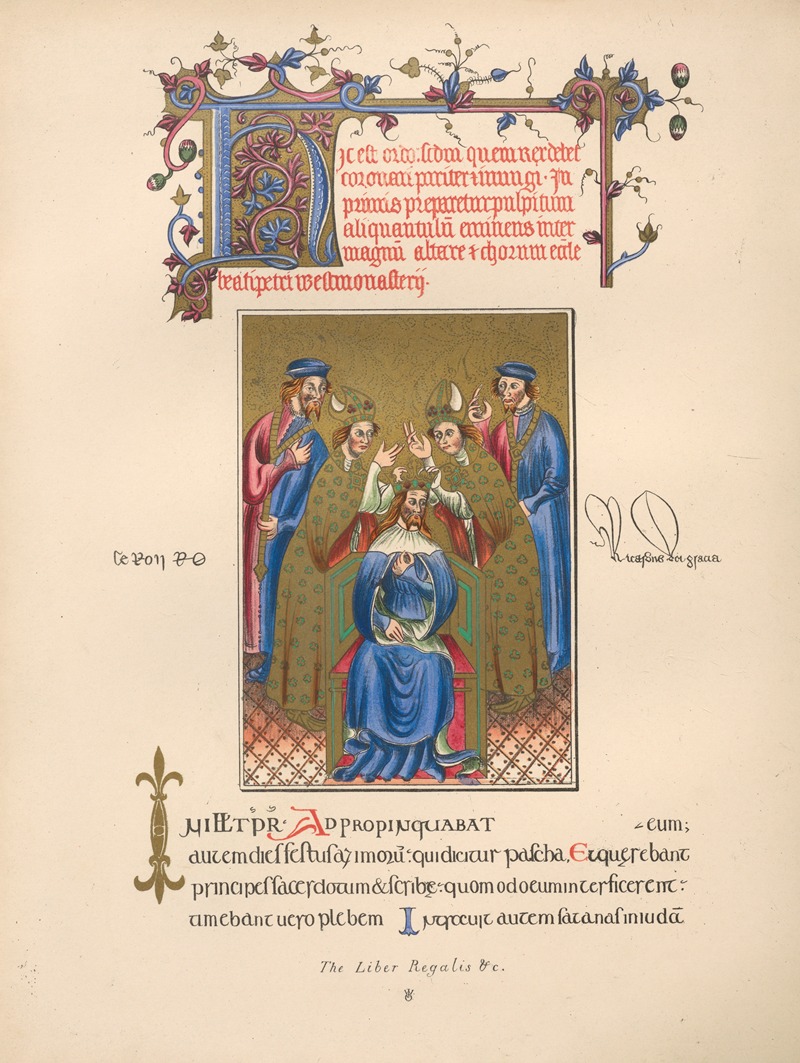 Hic est ordo: scdm quem rex debet
coronari pariter & inungi. In
primis preparetur pulpitum
aliquantulū eminens inter
magnū altare & chorum eccłe
beati petri westmonasterij.
le Roy RO
Ricardus dei gracia
NILLT PR. ADPROPINQUABAT
eum;
autem dies festus azimorū: qui dicitur pascha, Et querebant
principes sacerdotum & scribę: quomodo eum interficerent:
timebant uero plebem Intrauit autem satanas in iudā
The Liber Regalis &c.